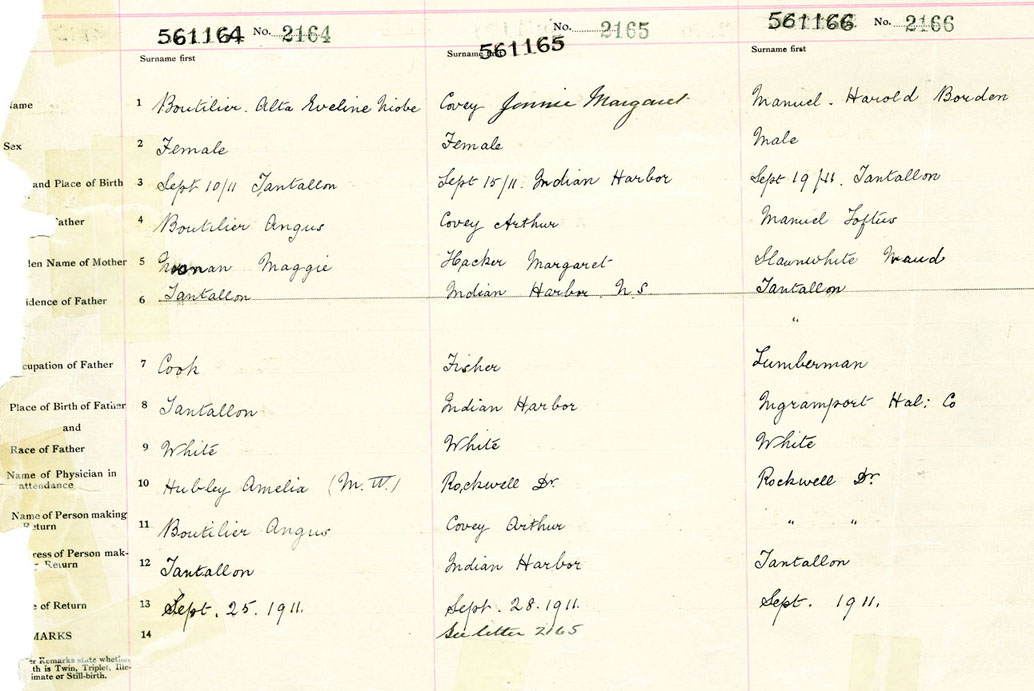 561164 No. 2164 561165 No. 2165 561166 No. 2166
Surname first Surname first Surname first
ame 1 Boutilier. Alta Eveline Niobe Covey Jennie Margaret Manuel. Harold Borden
Sex 2 Female Female Male
and Place of Birth 3 Sept 10/11 Tantallon Sept 15/11. Indian Harbor Sept 19/11. Tantallon
ather 4 Boutilier Angus Covey Arthur Manuel Loftus
den Name of Mother 5 Maggie Hacker Margaret Slaunwhite Maud
idence of Father 6 Tantallon Indian Harbor N.S. Tantallon
"
cupation of Father 7 Cook Fisher Lumberman
Place of Birth of Father 8 Tantallon Indian Harbor Ingramport Hal: Co
and
Race of Father 9 White White White
Name of Physician in attendance 10 Hubley Amelia (M.W.) Rockwell Dr. Rockwell Dr.
Name of Person making Return 11 Boutilier Angus Covey Arthur " "
ress of Person mak- Return 12 Tantallon Indian Harbor Tantallon
e of Return 13 Sept. 25. 1911. Sept. 28. 1911. Sept. 1911.
MARKS 14 See letter 2165
er Remarks state whethe
th is Twin, Triplet, Ille-
imate or Still-birth.